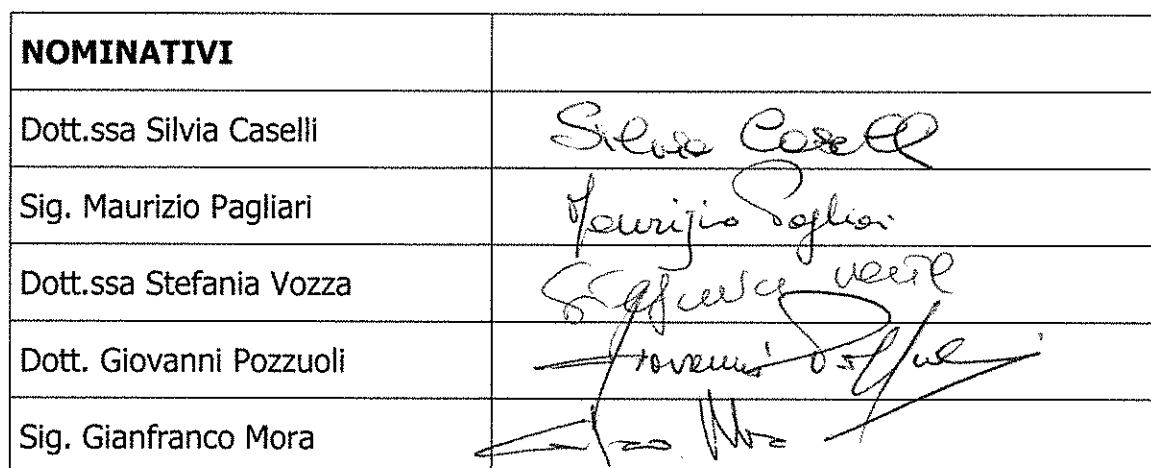 NOMINATIVI
Dott.ssa Silvia Caselli Silvia Caselli
Sig. Maurizio Pagliari Maurizio Pagliari
Dott.ssa Stefania Vozza Stefania
Dott. Giovanni Pozzuoli Giovanni Pozzuoli
Sig. Gianfranco Mora Mora